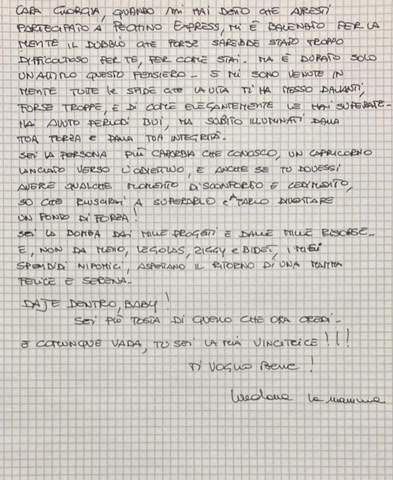 CARA GIORGIA, QUANDO MI HAI DETTO CHE AVRESTI
PARTECIPATO A PECHINO EXPRESS, MI È BALENATO PER LA
MENTE IL DUBBIO CHE FORSE SAREBBE STATO TROPPO
DIFFICOLTOSO PER TE, PER COME STAI. MA È DURATO SOLO
UN ATTIMO QUESTO PENSIERO. E MI SONO VENUTE IN
MENTE TUTTE LE SFIDE CHE LA VITA TI HA MESSO DAVANTI,
FORSE TROPPE, E DI COME ELEGANTEMENTE LE HAI SUPERATE.
HAI AVUTO PERIODI BUI, MA SUBITO ILLUMINATI DALLA
TUA FORZA E DALLA TUA INTEGRITÀ.
SEI LA PERSONA PIÙ CAPARBIA CHE CONOSCO, UN CAPRICORNO
LANCIATO VERSO L'OBIETTIVO, E ANCHE SE TU DOVESSI
AVERE QUALCHE MOMENTO DI SCONFORTO E CEDIMENTO,
SO CHE RIUSCIRAI A SUPERARLO E A FARLO DIVENTARE
UN PUNTO DI FORZA!
SEI LA DONNA DAI MILLE PROGETTI E DALLE MILLE RISORSE.
E, NON DA MENO, LEGOLAS, ZIGGY E BIDET, I MIEI
SPLENDIDI NIPOTINI, ASPETTANO IL RITORNO DI UNA MAMMA
FELICE E SERENA.
DAJE DENTRO, BABY!
SEI PIÙ TOSTA DI QUELLO CHE ORA CREDI.
E COMUNQUE VADA, TU SEI LA MIA VINCITRICE!!!
TI VOGLIO BENE!
la mamma